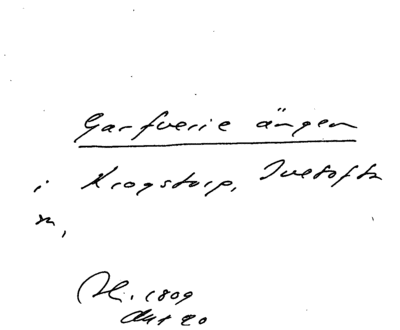 Garfverie ängen
i Krogstorp, Ivetofta
sn,
1809